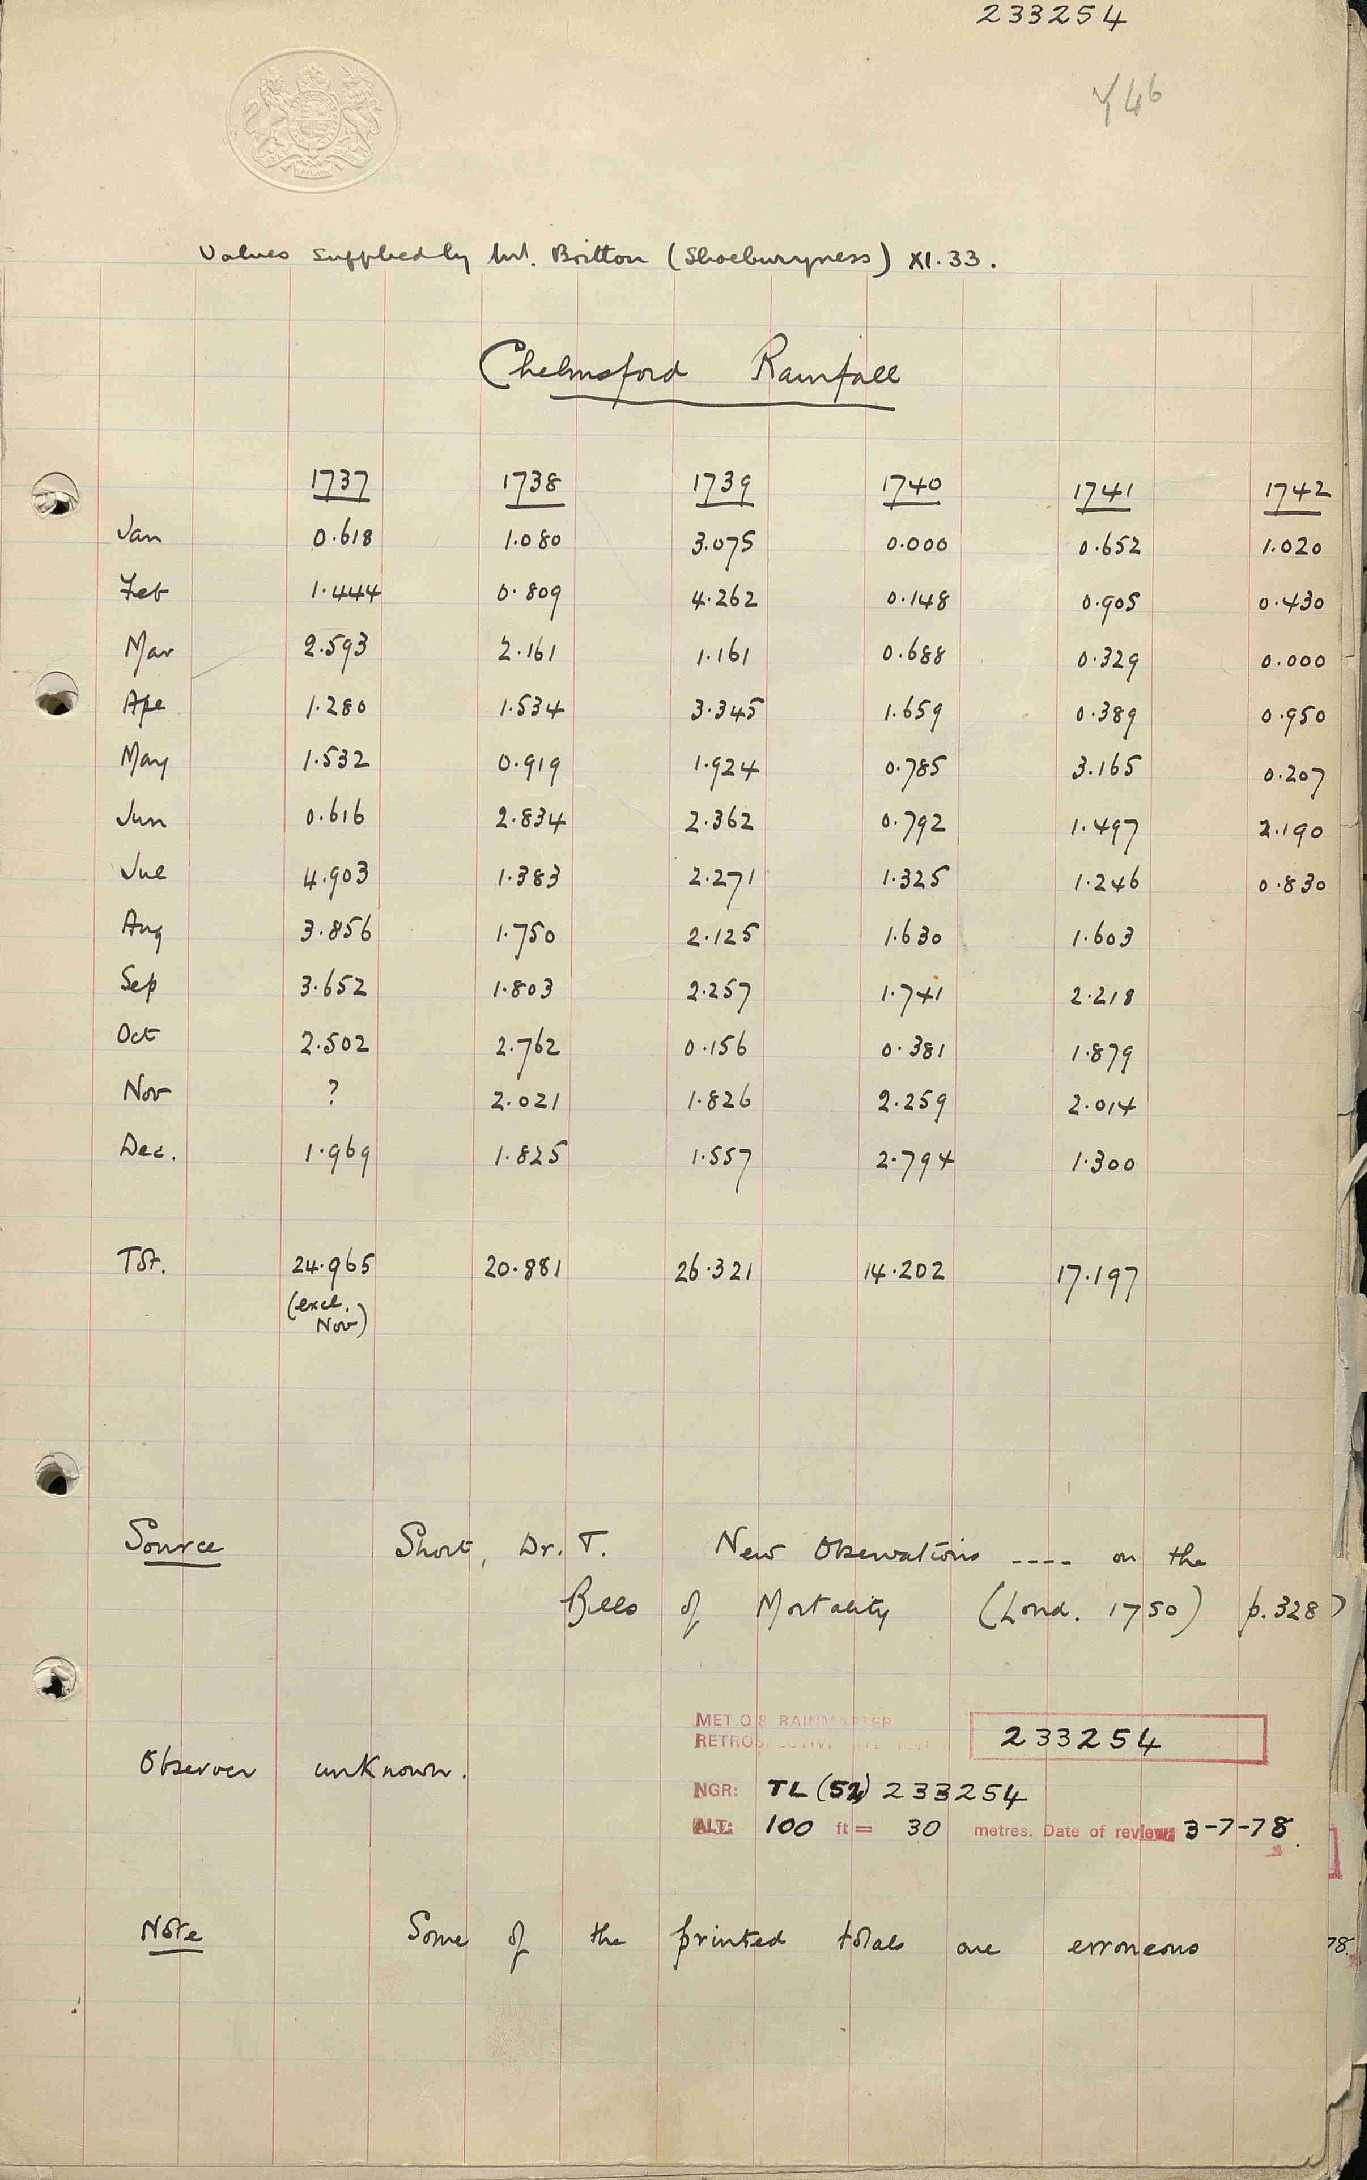 233254
Y46
Values supplied by Mr. Britton (Shoeburyness) XI.33.
Chelmsford Rainfall
1737 1738 1739 1740 1741 1742
Jan 0.618 1.080 3.075 0.000 0.652 1.020
Feb 1.444 0.809 4.262 0.148 0.905 0.430
Mar 2.593 2.161 1.161 0.688 0.329 0.000
Apl 1.280 1.534 3.345 1.659 0.389 0.950
May 1.532 0.919 1.924 0.785 3.165 0.207
Jun 0.616 2.834 2.362 0.792 1.497 2.190
Jul 4.903 1.383 2.271 1.325 1.246 0.830
Aug 3.856 1.750 2.125 1.630 1.603
Sep 3.652 1.803 2.257 1.741 2.218
Oct 2.502 2.762 0.156 0.381 1.879
Nov ? 2.021 1.826 2.259 2.014
Dec. 1.969 1.825 1.557 2.794 1.300
Tot. 24.965 20.881 26.321 14.202 17.197
(excl.
Nov)
Source Short, Dr. T. New Observations ---- on the
Bills of Mortality (Lond. 1750) p.328
MET.O.8 RAINMASTER
233254
Observer unknown.
NGR: TL (52) 233254
ALT: 100 ft = 30 metres. Date of review: 3-7-78.
Note Some of the printed totals are erroneous
78.